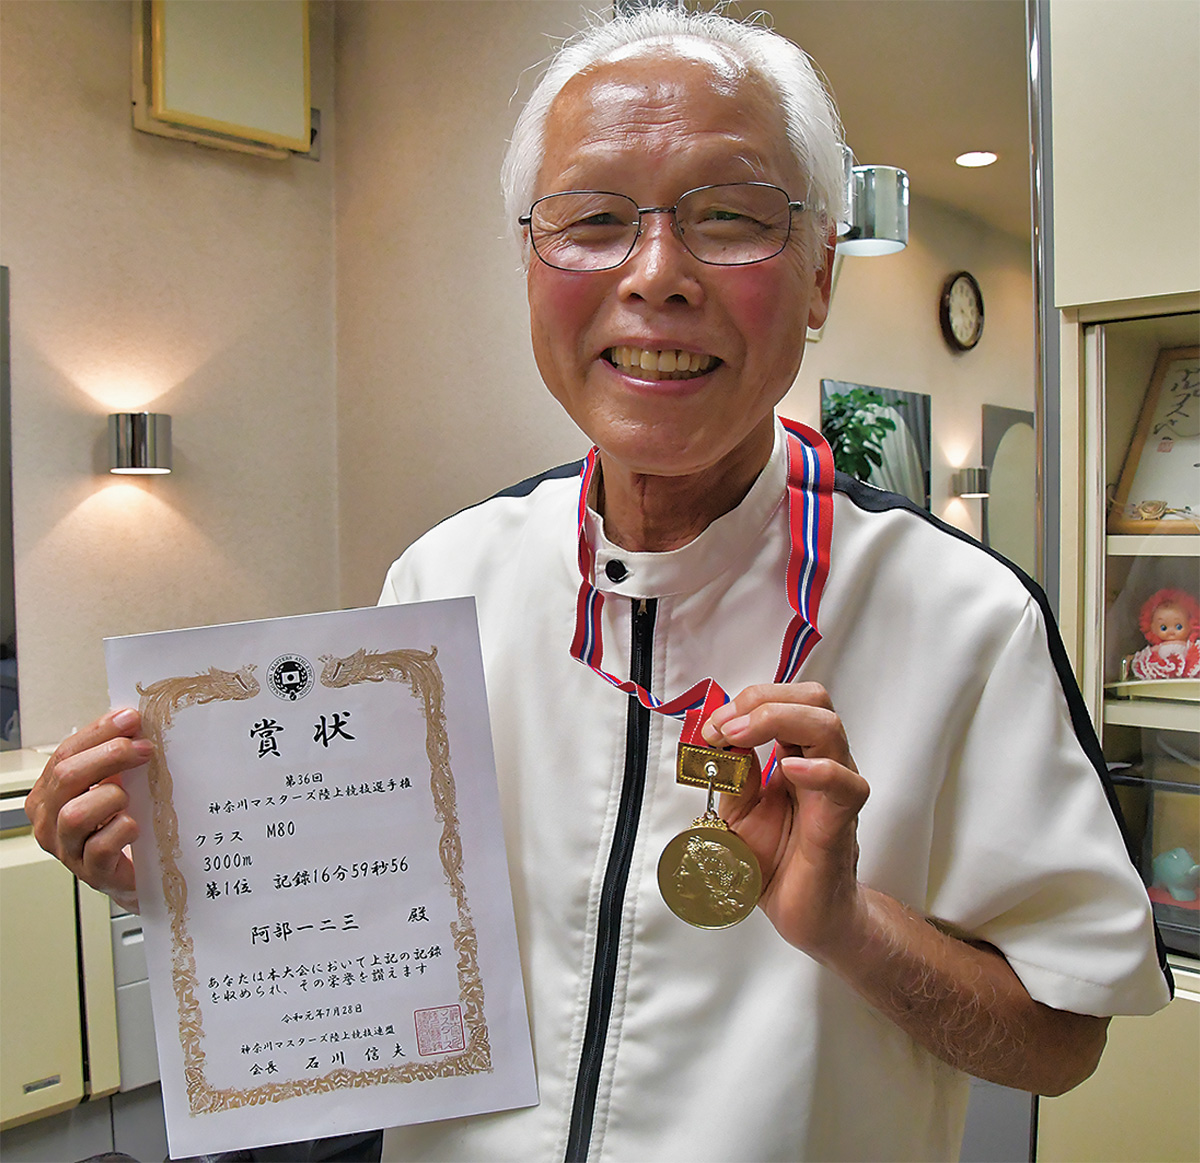 賞状
第36回
神奈川マスターズ陸上競技選手権
クラス M80
3000m
第1位 記録16分59秒56
阿部一二三 殿
あなたは本大会において上記の記録
を収められ、その栄誉を讃えます
令和元年7月28日
神奈川マスターズ陸上競技連盟
会長 石川信夫